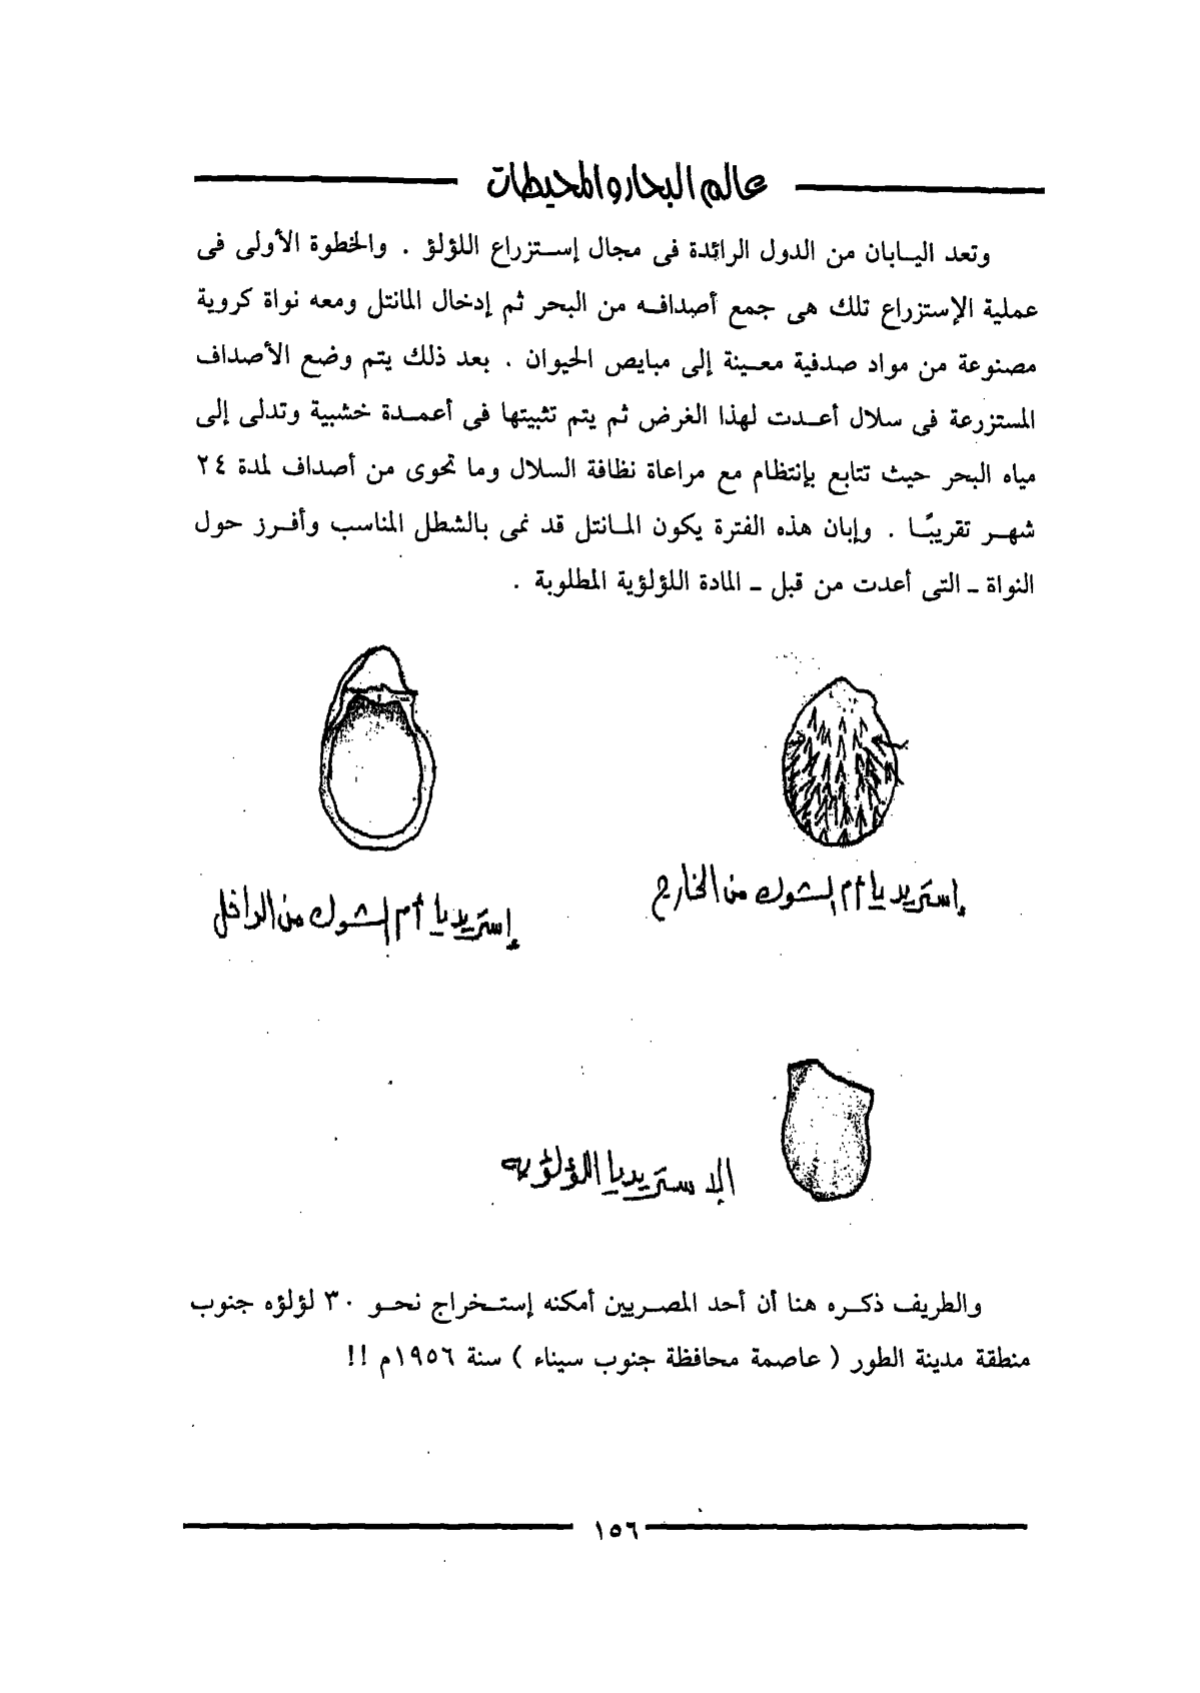 عالم البحار والمحيطات
وتعد اليابان من الدول الرائدة فى مجال إستزراع اللؤلؤ . والخطوة الأولى فى
عملية الإستزراع تلك هى جمع أصدافه من البحر ثم إدخال المانتل ومعه نواة كروية
مصنوعة من مواد صدفية معينة إلى مبايص الحيوان . بعد ذلك يتم وضع الأصداف
المستزرعة فى سلال أعدت لهذا الغرض ثم يتم تثبيتها فى أعمدة خشبية وتدلى إلى
مياه البحر حيث تتابع بإنتظام مع مراعاة نظافة السلال وما تحوى من أصداف لمدة ٢٤
شهر تقريبًا . وإبان هذه الفترة يكون المانتل قد نمى بالشطل المناسب وأفرز حول
النواة ـ التى أعدت من قبل ـ المادة اللؤلؤية المطلوبة .
إستريديا أم الشوك من الخارج
إستريديا أم الشوك من الداخل
الإستريديا اللؤلؤيه
والطريف ذكره هنا أن أحد المصريين أمكنه إستخراج نحو ٣٠ لؤلؤه جنوب
منطقة مدينة الطور ( عاصمة محافظة جنوب سيناء ) سنة ١٩٥٦م !!
١٥٦